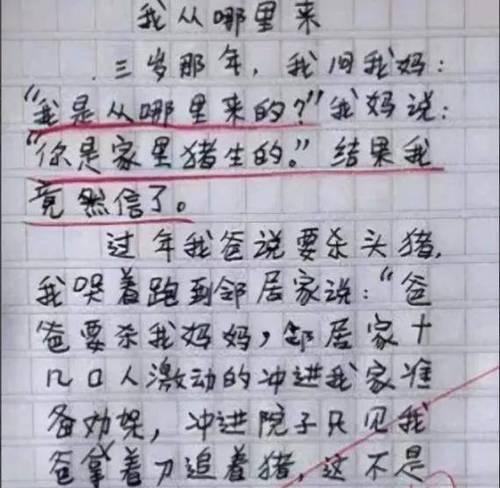 我从哪里来
三岁那年，我问我妈：
“我是从哪里来的？”我妈说：
“你是家里猪生的。”结果我
竟然信了。
过年我爸说要杀头猪，
我哭着跑到邻居家说：“爸
爸要杀我妈妈，邻居家十
几口人激动的冲进我家准
备劝架，冲进院子只见我
爸拿着刀追着猪，这不是